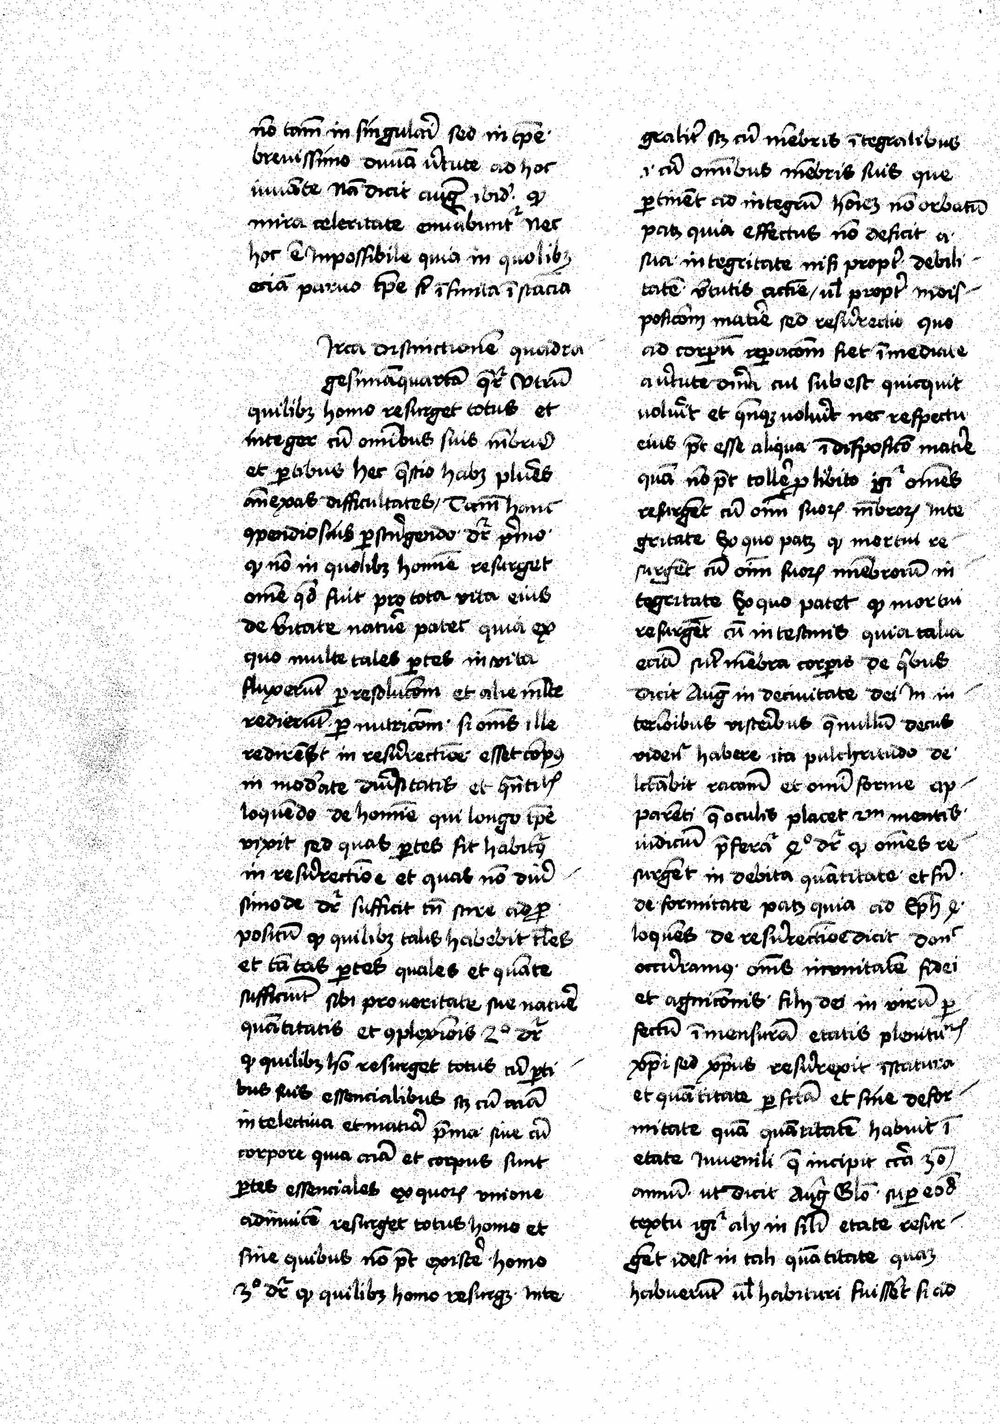 nō tam̄ in singulari sed in tp̄e
breuissimo diuīa v̄tute ad hoc
iuuāte Nā dicit auḡ ibid' ꝙ
mira celeritate enuabunt᷑ Nec
hoc ē Inpossibile quia in quolibꝫ
eciā paruo tp̄e sūt īfinita īstācia
Irca distinctionē quadra
gesimāquartā q̄r᷑ Vtrū
quilibꝫ homo resurget totus et
integer cū om̄ibus suis mēbris
et ꝑtibus hec q̄stio habꝫ plures
ānexas difficultates Tam̄ hanc
ꝯpendiosius ꝑstringendo dr᷑ primo
ꝙ nō in quolibꝫ homīe resurget
om̄e qd̄ fuit pro tota vita eius
de v̄itate nature patet quia ex
quo multe tales ꝑtes in vita
fluxerūt ꝑ resoluc̄om et alie ml̄te
redierūt ꝑ nutric̄om si om̄s ille
redirent in resurrectiōe esset corpꝯ
in mod̄ate diu̓sitatis et
loquēdo de homīe qui longo tp̄e
vixit sed quas ꝑtes sit habitur᷑
in resurrectiōe et quas nō
de dr᷑ sufficit tn̄ scire ad ꝓ
positū ꝙ quilibꝫ talis habebit tales
et tātas ꝑtes quales et quāte
sufficiūt sibi pro veritate sue nature
quātitatis et ꝯplexiōis 2º dr᷑
ꝙ quilibꝫ hō resurget totus cū ꝑti
bus suis essencialibus sꝫ cū aīa
intelectiua et materia p̄ma siue cū
corpore quia aīa et corpus sunt
ꝑtes essenciales ex quorꝫ vnione
adinuicē resurget totus homo et
sine quibus nō pōt existere homo
3º dr᷑ ꝙ quilibꝫ homo resurgꝫ inte
graliter sꝫ cū mēbris ītegralibus
.i. cū om̄ibus mēbris suis que
ꝑtinēt ad integrū hoīeꝫ nō orbatū
patꝫ quia effectus nō deficit a
sua integritate nisi propter debili
tatē v̄tutis agētis / ul̄ propter indis
posic̄om materie sed resurrectio quo
ad corporū reparac̄om fiet īmediate
a v̄tute diuina cui subest quicquit
voluerit et qn̄cꝫ voluerit nec respectu
eius pōt esse aliqua īdisposic̄o materie
quā nō pōt tollere pro libito igr᷑ om̄es
resurgēt cū om̄i suorꝫ mēbrorꝫ inte
gritate Ex quo patꝫ ꝙ mortui re
surgēt cū om̄i suorꝫ mēbrorū in
tegritate Ex quo patet ꝙ mortui
resurgēt cū intestinis quia talia
eciā sūt mēbra corporis de quibus
dicit Auḡ in de ciuitate dei In in
terioribus visceribus q̄ nullū decus
vident᷑ habere ita pulchritudo de
lectabit racōnis et om̄i forme ap
parēti q̄ oculis placet vn̄ mentis
iudiciū p̄feratur 4º dr᷑ ꝙ om̄es re
surgēt in debita quātitate et sine
deformitate patꝫ quia ad Eph̄ 4
loquēs de resurrectiōe dicit donec
occurramꝯ om̄s in vnitatē fidei
et agnic̄onis filij dei in virū ꝑ
fectū ī mensurā etatis plenitudīs
xp̄i sed xp̄us resurrexit ī statura
et quātitate ꝑfectā et sine defor
mitate quā quātitatē habuit ī
etate Iuuenili q̄ incipit circa 30
annū ut dicit Auḡ Glo. super eod̄
textu igr᷑ alij in sili etate resur
gēt idest in tali quātitate quaꝫ
habuerūt ul̄ habituri fuissēt si ad